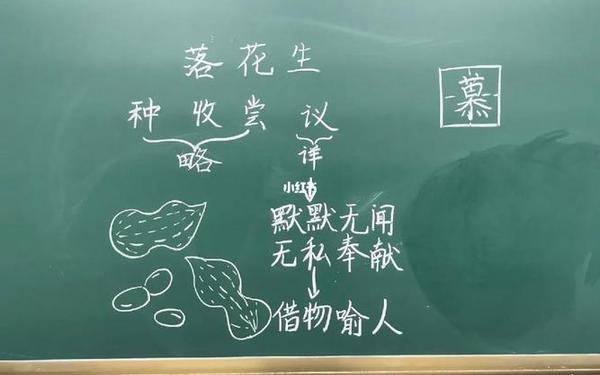 落花生
慕
种 收 尝 议
略 详
小红书
默默无闻
无私奉献
借物喻人